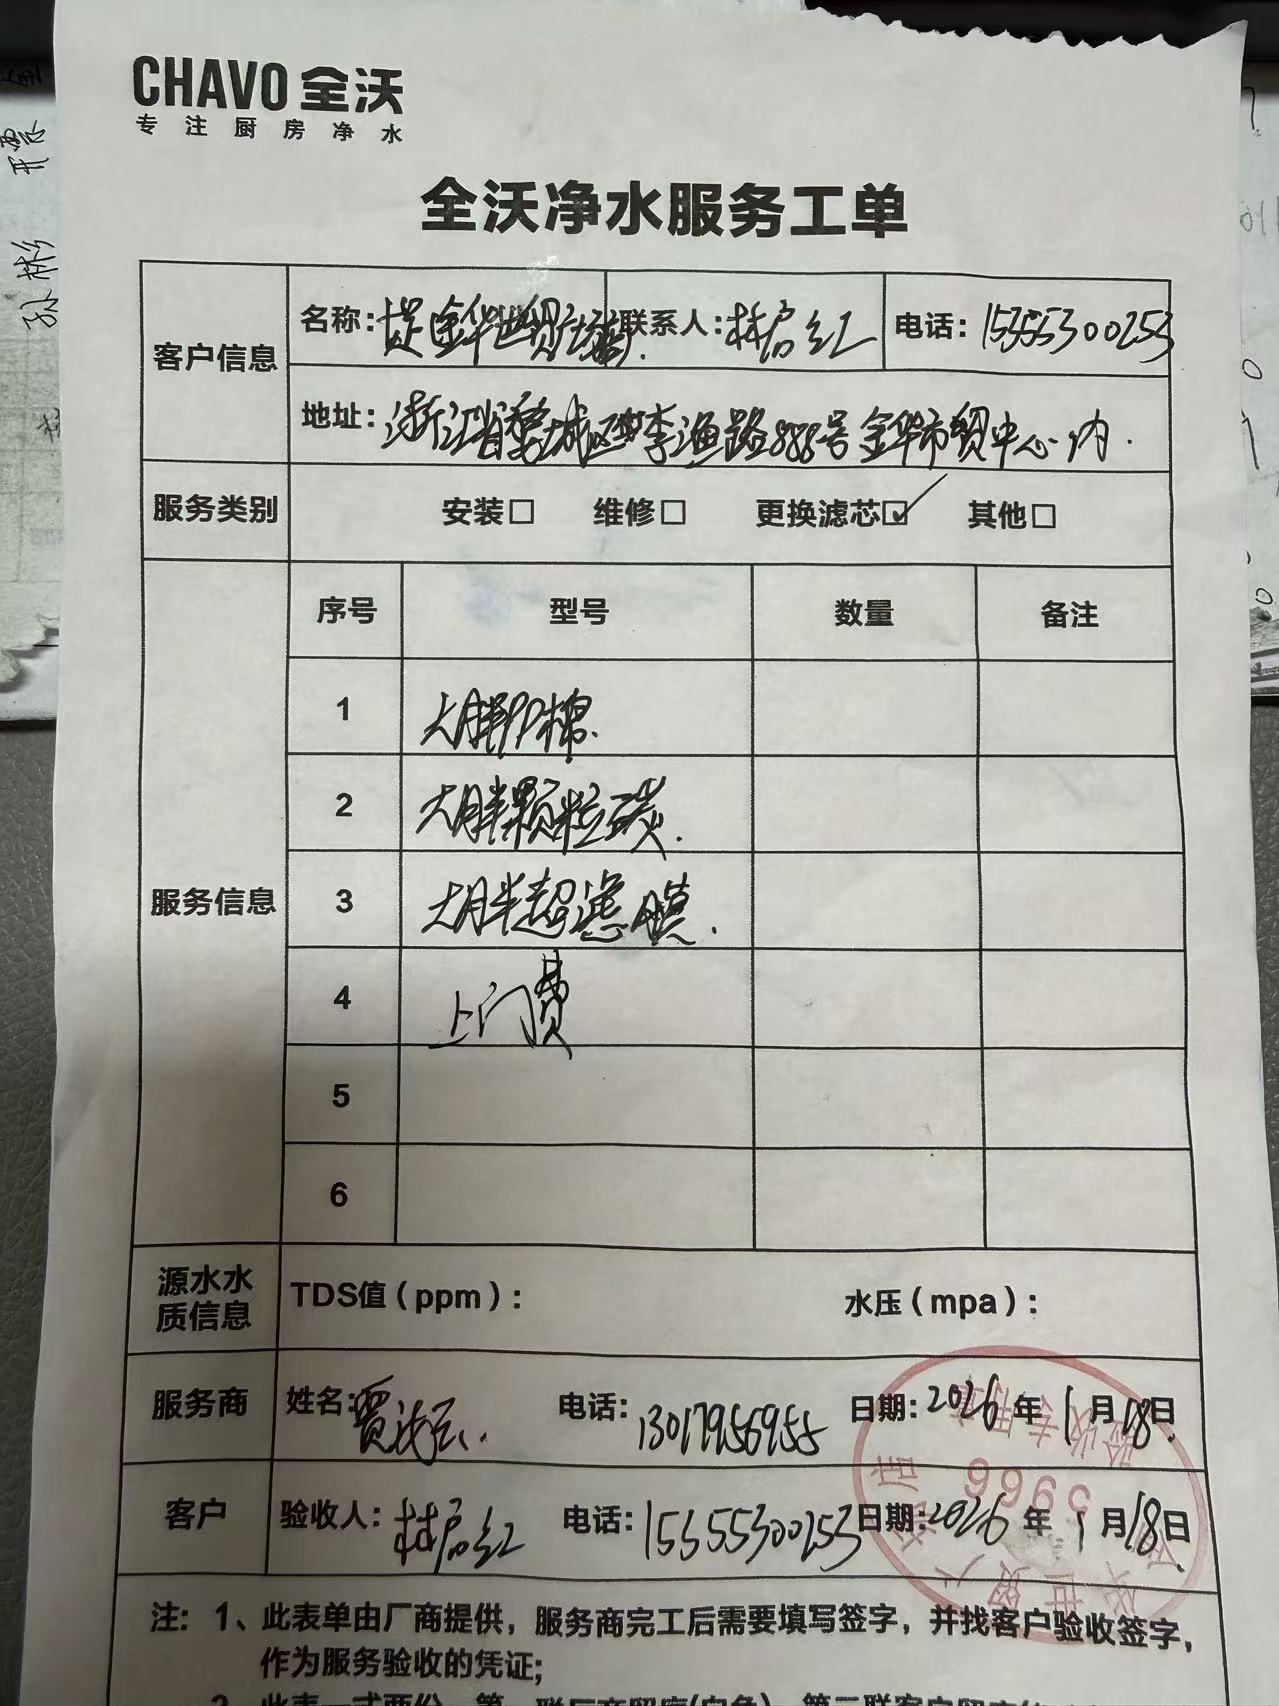 CHAVO 全沃
专注厨房净水
全沃净水服务工单
客户信息
名称: 金华世贸 联系人: 林启红 电话: 15355300253
地址: 浙江省婺城区李渔路888号金华市贸中心内.
服务类别 安装□ 维修□ 更换滤芯☑ 其他□
服务信息
序号 型号 数量 备注
1 大胖PP棉.
2 大胖颗粒碳.
3 大胖超滤膜.
4 上门费
5
6
源水水质信息 TDS值(ppm): 水压(mpa):
服务商 姓名: 贾 电话: 13017956955 日期: 2026年1月18日
客户 验收人: 林启红 电话: 15355300253 日期: 2026年1月18日
5966
验收专用
注: 1、此表单由厂商提供, 服务商完工后需要填写签字, 并找客户验收签字,
作为服务验收的凭证;